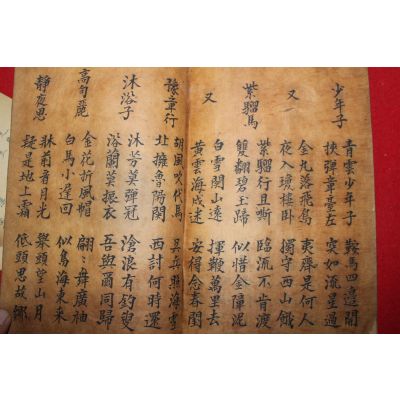 少年子
青雲少年子 鞍馬四邊開
挾彈章臺左 突如流星過
又
金丸落飛鳥 夷齊是何人
夜入瓊樓臥 獨守西山餓
紫騮馬
紫騮行且嘶 臨流不肯渡
雙翻碧玉蹄 似惜金障泥
又
白雪關山遠 揮鞭萬里去
黃雲海戍迷 安得念春閨
豫章行
胡風吹代馬 吳兵照海雪
北擁魯陽關 西討何時還
沐浴子
沐芳莫彈冠 滄浪有釣叟
浴蘭莫振衣 吾與爾同歸
高句麗
金花折風帽 翩〻舞廣袖
白馬小遲回 似鳥海東来
靜夜思
牀前看月光 舉頭望山月
疑是地上霜 低頭思故鄉